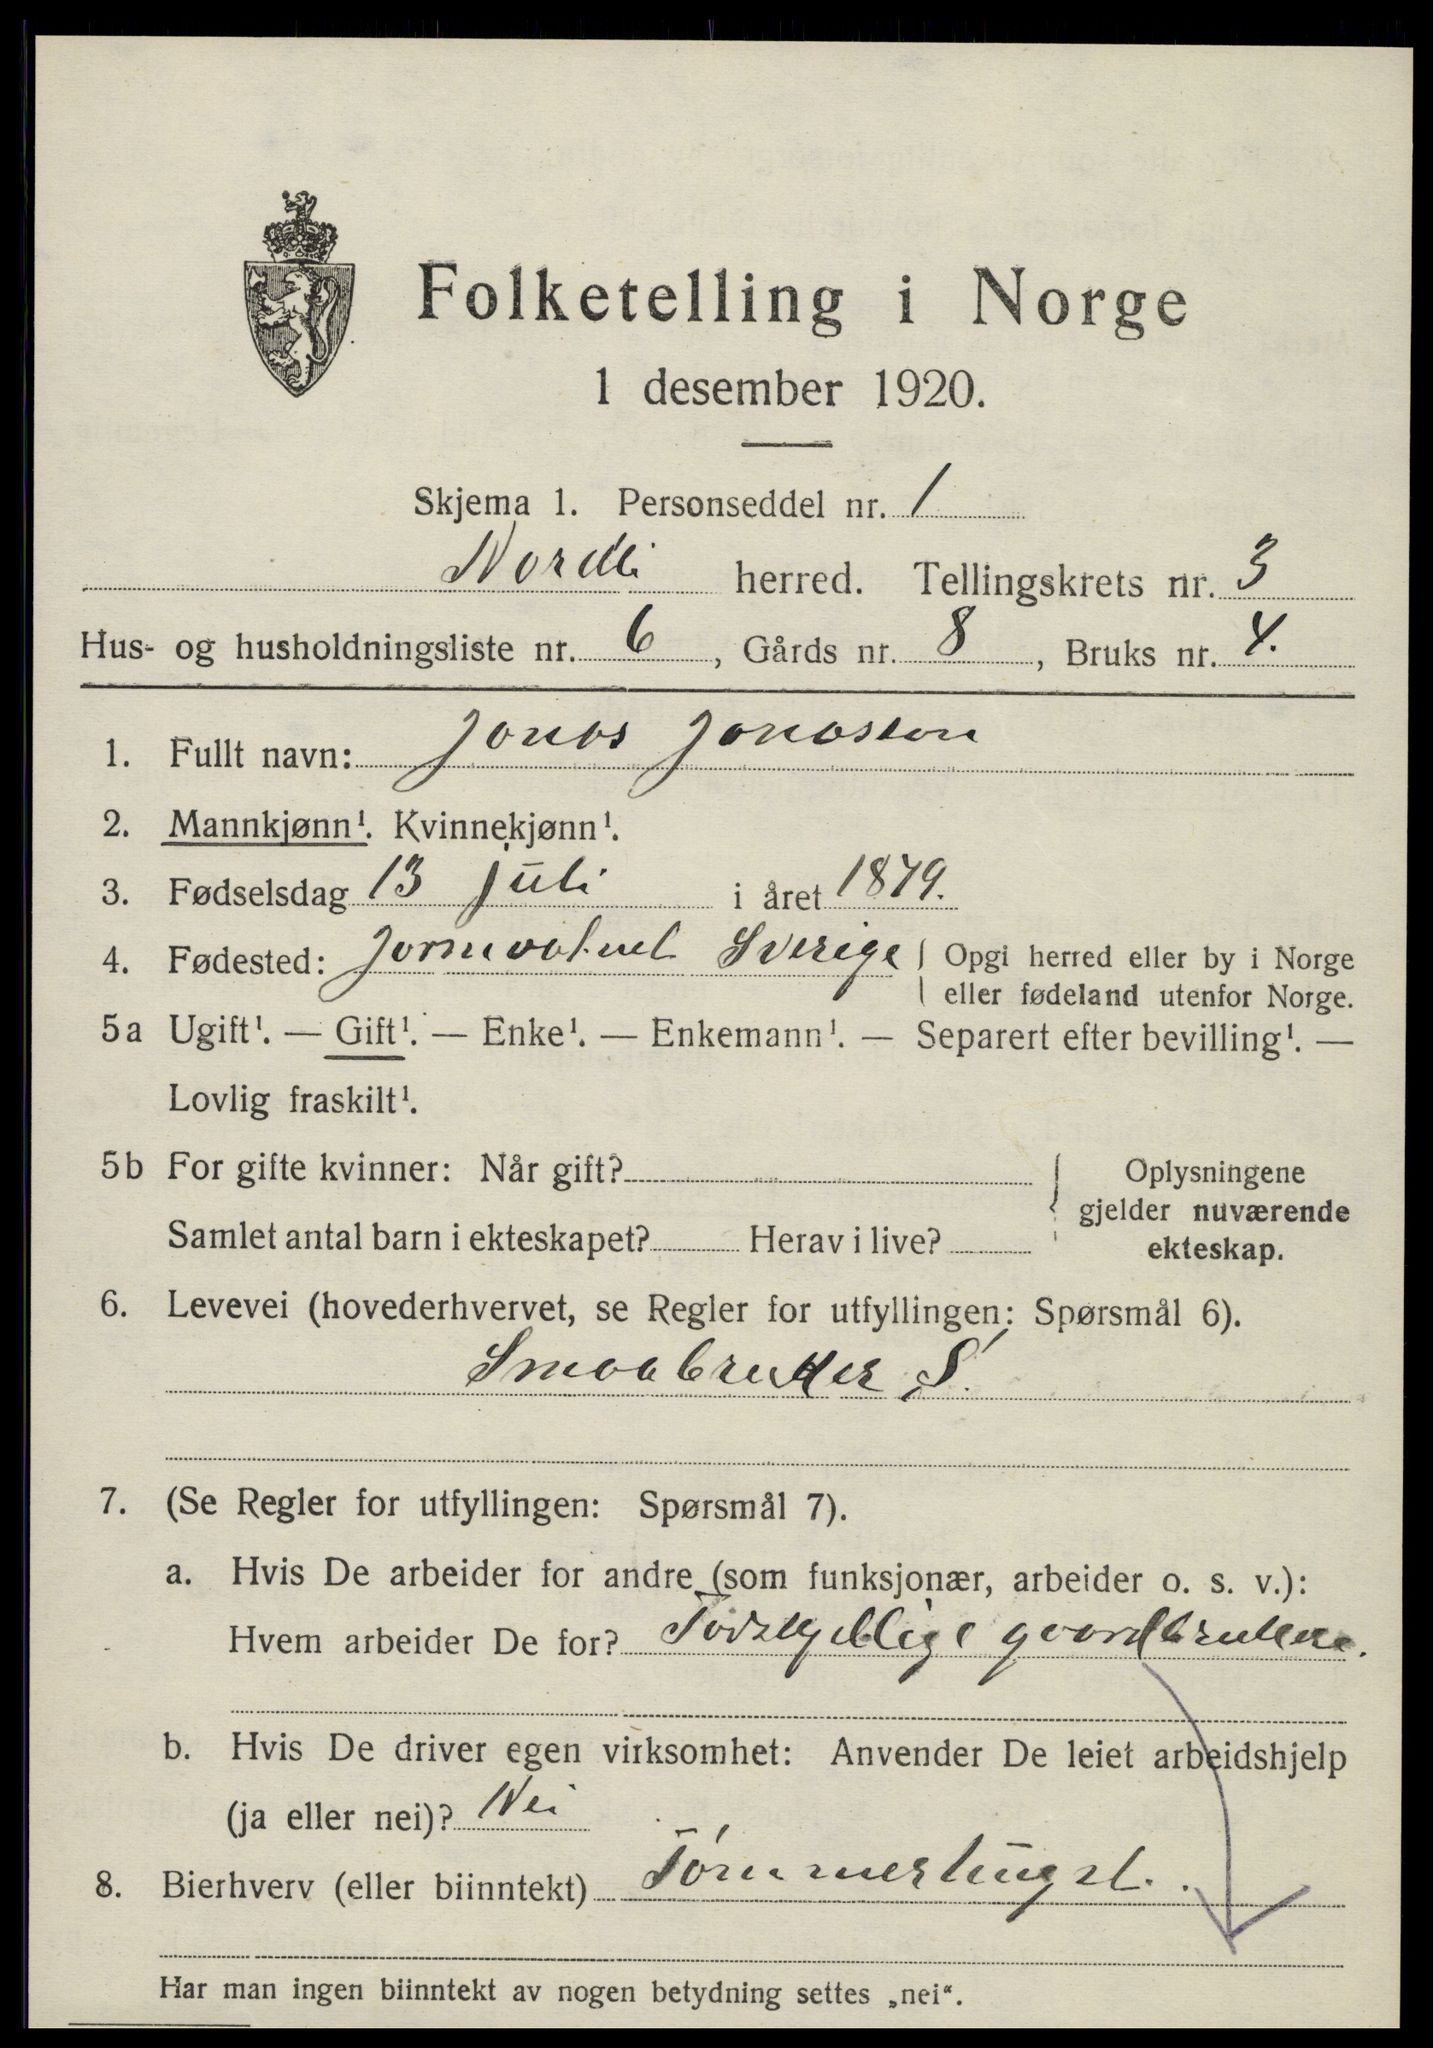 Folketelling i Norge
1 desember 1920.
Skjema 1. Personseddel nr. 1
Nordli herred. Tellingskrets nr. 3
Hus- og husholdningsliste nr. 6, Gårds nr. 8, Bruks nr. 4.
1. Fullt navn: Jonas Jonassen
2. Mannkjønn¹. Kvinnekjønn¹.
3. Fødselsdag 13 juli i året 1879.
4. Fødested: Jormvatnet Sverige { Opgi herred eller by i Norge
eller fødeland utenfor Norge.
5a Ugift¹. — Gift¹. — Enke¹. — Enkemann¹. — Separert efter bevilling¹. —
Lovlig fraskilt¹.
5b For gifte kvinner: Når gift? { Oplysningene
gjelder nuværende
Samlet antal barn i ekteskapet? Herav i live? ekteskap.
6. Levevei (hovederhvervet, se Regler for utfyllingen: Spørsmål 6).
Smaabruker, S.
7. (Se Regler for utfyllingen: Spørsmål 7).
a. Hvis De arbeider for andre (som funksjonær, arbeider o. s. v.):
Hvem arbeider De for? Forskjellige gaardbrukere.
b. Hvis De driver egen virksomhet: Anvender De leiet arbeidshjelp
(ja eller nei)? Nei
8. Bierhverv (eller biinntekt) Tømmerhugst.
Har man ingen biinntekt av nogen betydning settes „nei“.